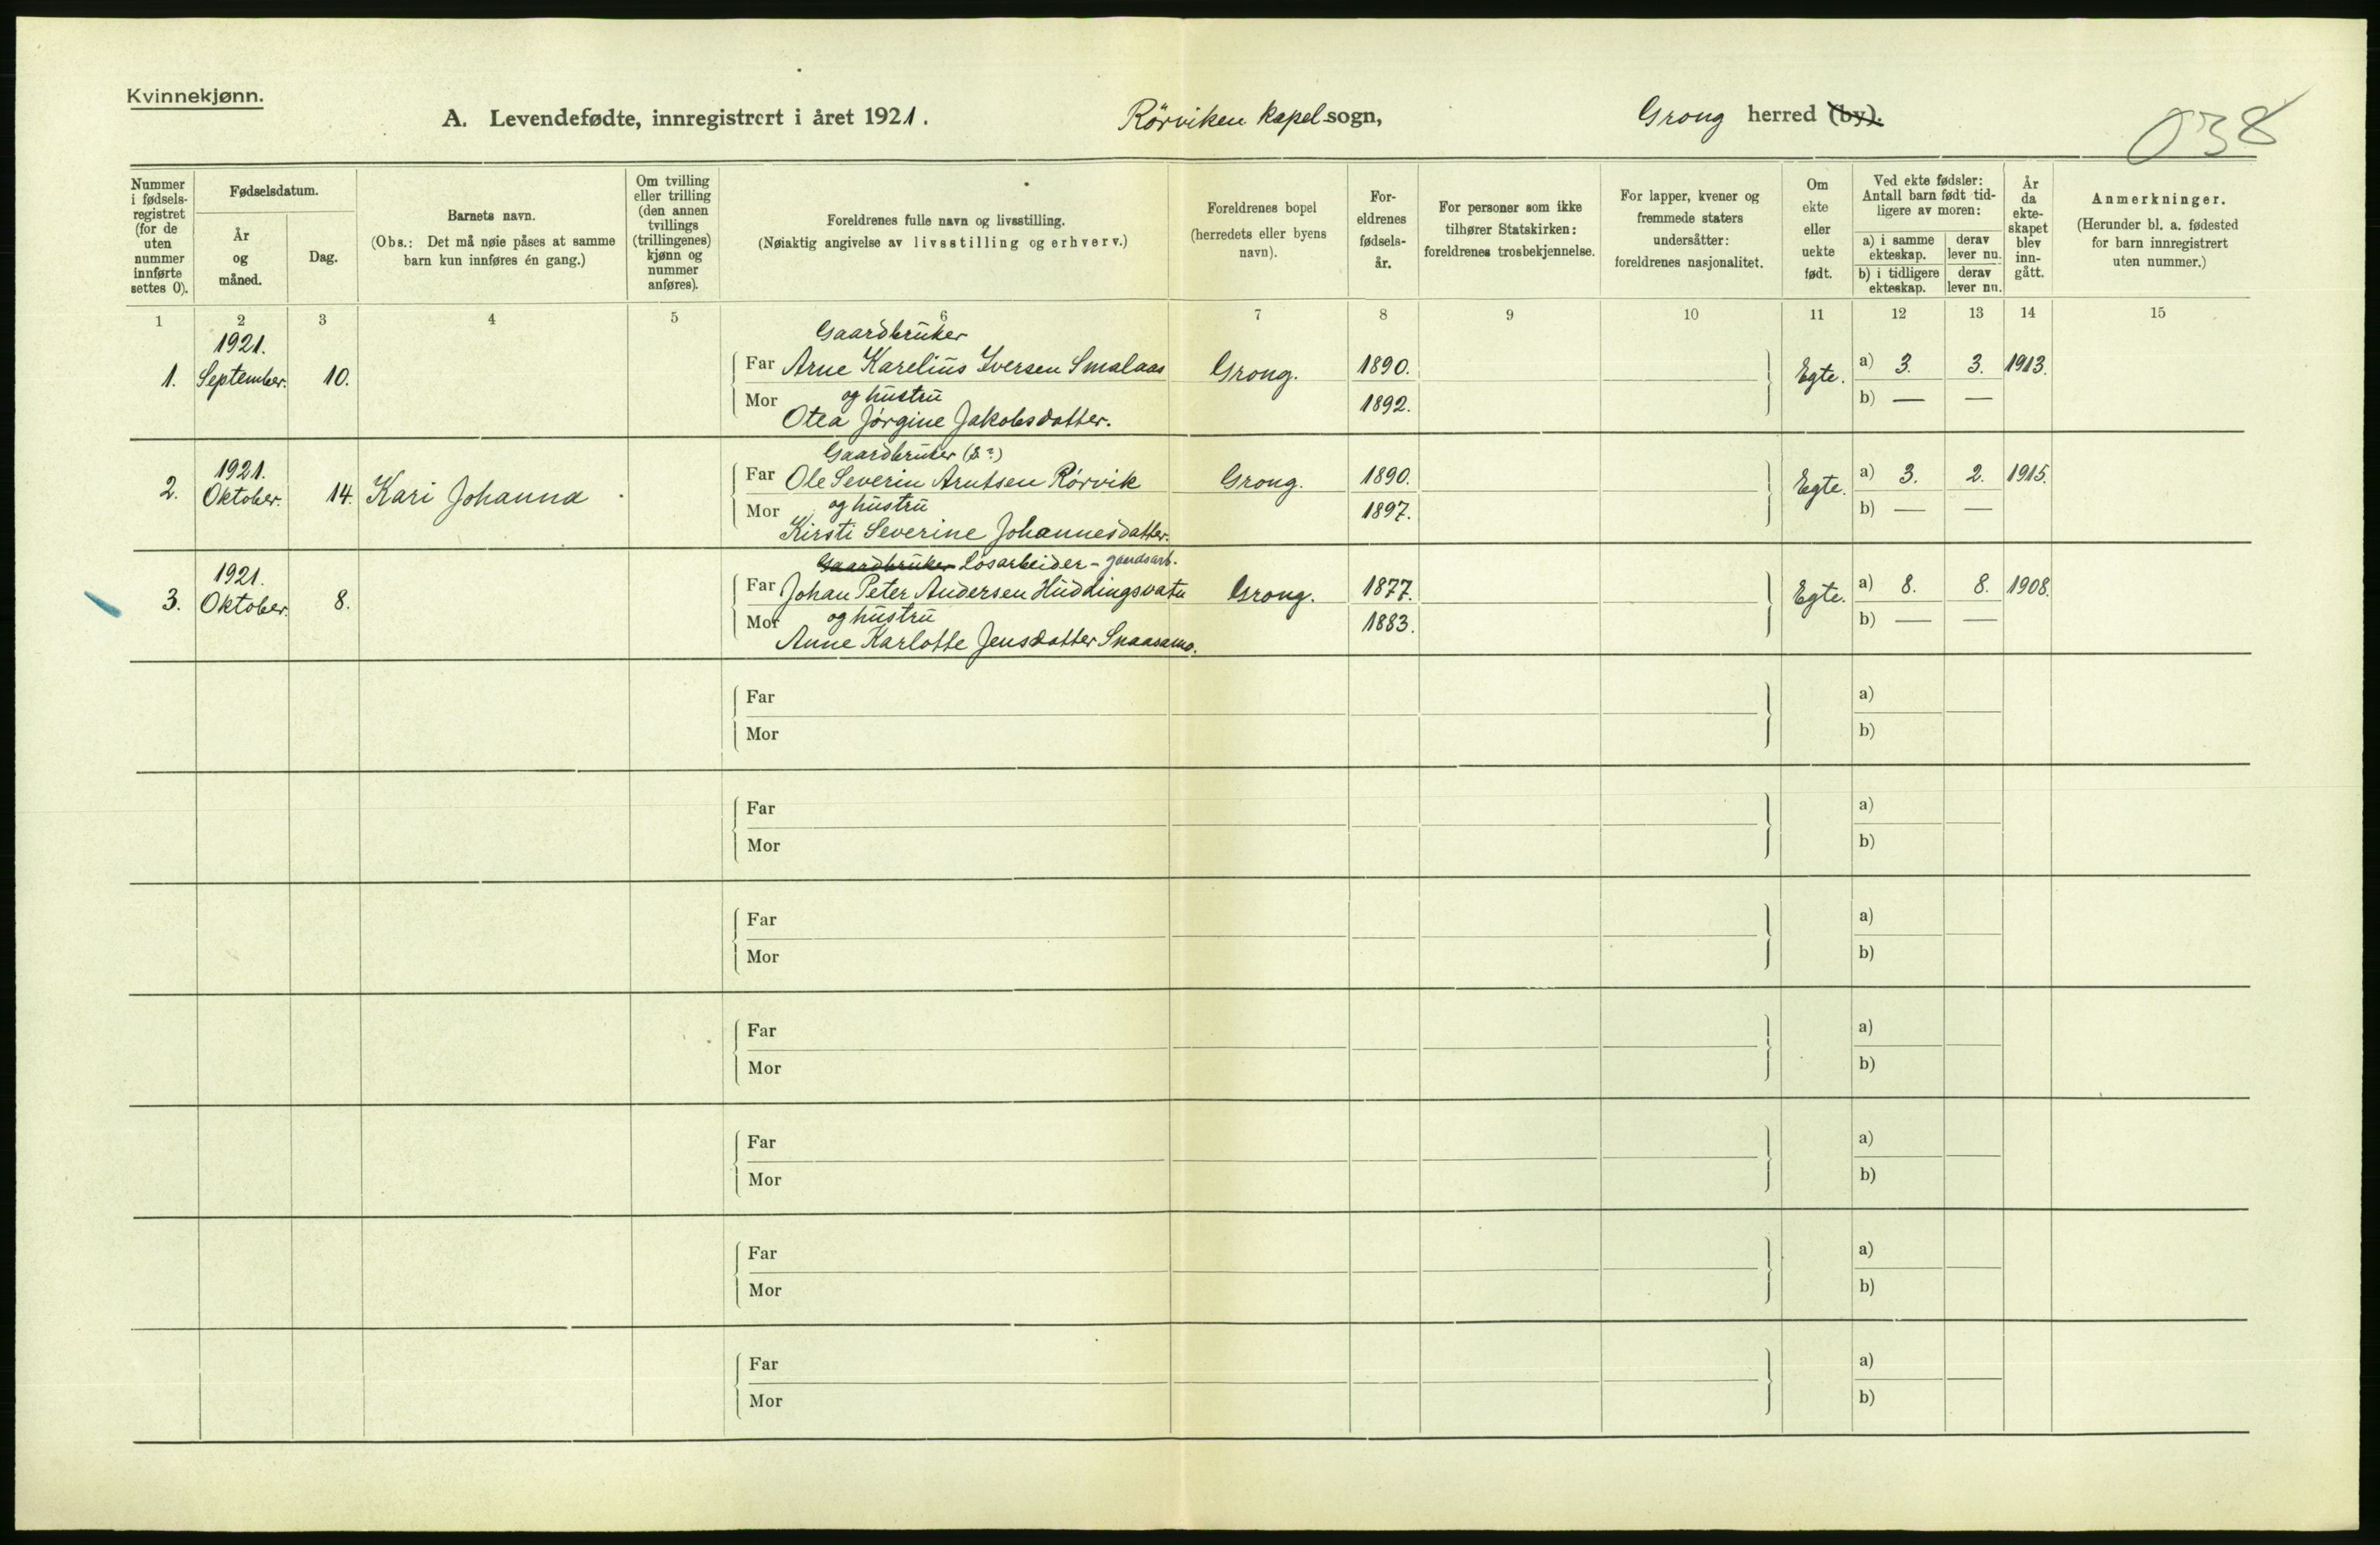 Kvinnekjønn.
A. Levendefødte, innregistrert i året 1921.
Rörviken kapel sogn,
Grong herred (by).
038
Nummer i fødsels-registret (for de uten nummer innførte settes 0).
Fødselsdatum.
År og måned.
Dag.
Barnets navn.
(Obs.: Det må nøie påses at samme barn kun innføres én gang.)
Om tvilling eller trilling (den annen tvillings (trillingenes) kjønn og nummer anføres).
Foreldrenes fulle navn og livsstilling.
(Nøiaktig angivelse av livsstilling og erhverv.)
Foreldrenes bopel (herredets eller byens navn).
For-eldrenes fødsels-år.
For personer som ikke tilhører Statskirken: foreldrenes trosbekjennelse.
For lapper, kvener og fremmede staters undersåtter: foreldrenes nasjonalitet.
Om ekte eller uekte født.
Ved ekte fødsler: Antall barn født tid-ligere av moren:
a) i samme ekteskap.
derav lever nu.
b) i tidligere ekteskap.
derav lever nu.
År da ekte-skapet blev inn-gått.
Anmerkninger.
(Herunder bl. a. fødested for barn innregistrert uten nummer.)
1 2 3 4 5 6 7 8 9 10 11 12 13 14 15
1921. Gaardbruker
1. September. 10. Far Arne Karelius Iversen Smalaas Grong. 1890. Egte. a) 3. 3. 1913.
Mor og hustru 1892. b) — —
Otea Jörgine Jakobsdatter.
1921. Gaardbruker (S?)
2. Oktober. 14. Kari Johanna Far Ole Severin Arntsen Rörvik Grong. 1890. Egte. a) 3. 2. 1915.
Mor og hustru 1897. b) — —
Kirsti Severine Johannesdatter.
1921. Gaardbruker Lösarbeider - gaardsarb.
3. Oktober. 8. Far Johan Peter Andersen Huddingsvatn Grong. 1877. Egte. a) 8. 8. 1908.
Mor og hustru 1883. b) — —
Anne Karlotte Jensdatter Snaasamo.
Far a)
Mor b)
Far a)
Mor b)
Far a)
Mor b)
Far a)
Mor b)
Far a)
Mor b)
Far a)
Mor b)
Far a)
Mor b)